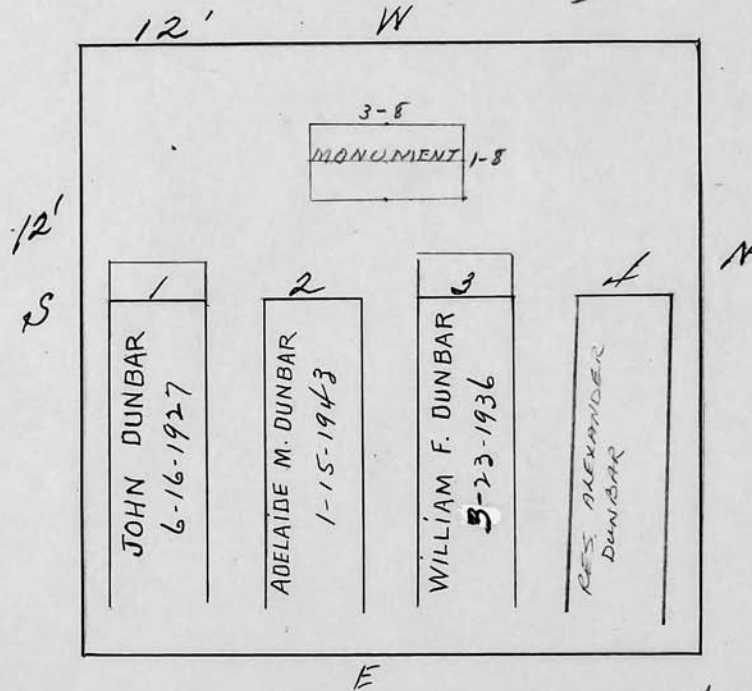 12' W
3-8
MONUMENT 1-8
12'
S
N
1
JOHN DUNBAR
6-16-1927
2
ADELAIDE M. DUNBAR
1-15-1943
3
WILLIAM F. DUNBAR
3-23-1936
4
RES. ALEXANDER
DUNBAR
E